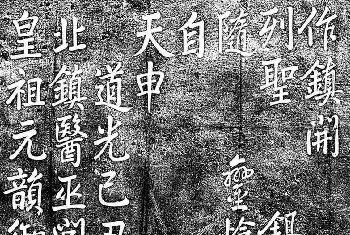 作鎮開
列聖
隨
自
天申
道光己丑
北鎮醫巫閭
皇祖元韻